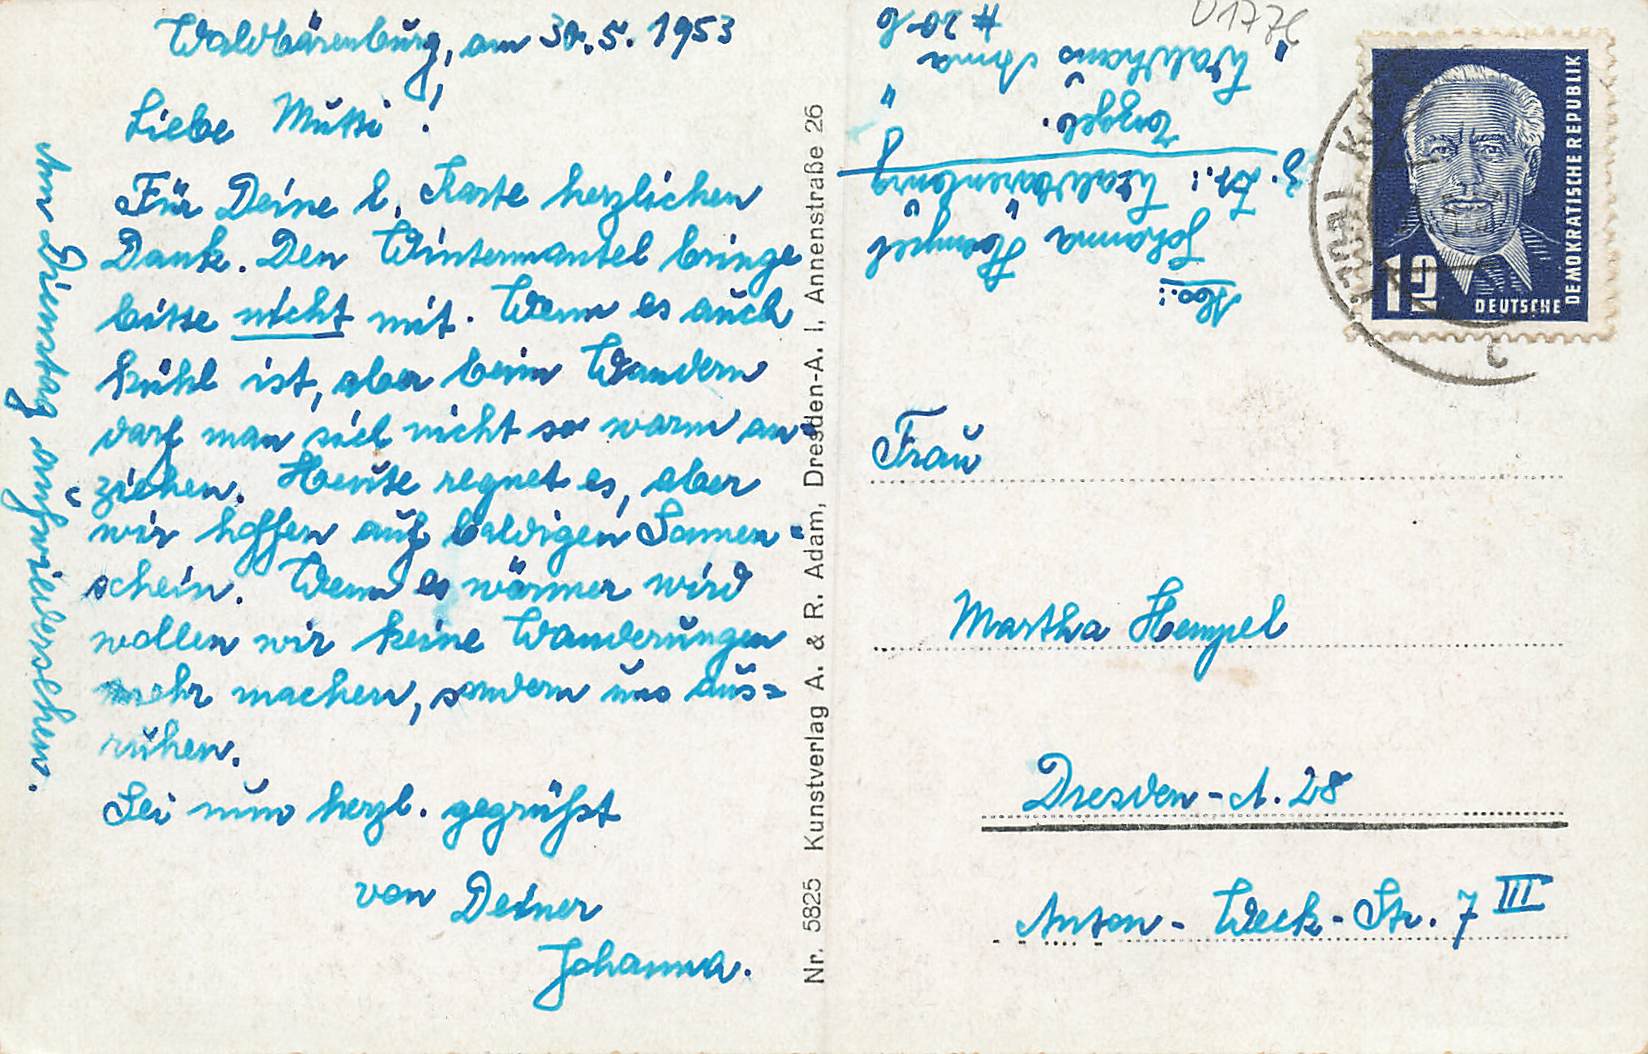 Waldbärenburg, am 30.5.1953
Liebe Mutti!
Für Deine l. Karte herzlichen
Dank. Den Wintermantel bringe
bitte nicht mit. Wenn es auch
kühl ist, aber beim Wandern
darf man sich nicht so warm an-
ziehen. Heute regnet es, aber
wir hoffen auf baldigen Sonnen=
schein. Wenn es wärmer wird
wollen wir keine Wanderungen
mehr machen, sondern uns aus=
ruhen.
Sei nun herzl. gegrüßt
von Deiner
Johanna.
Am Dienstag aufwiedersehen.
Nr. 5825 Kunstverlag A. & R. Adam, Dresden-A. I, Annenstraße 26
Abs.:
Johanna Hempel
z. Zt.: Waldbärenburg
Erzgeb.
" Waldhaus Anna "
# 20 b
U1776
12
DEUTSCHE
DEMOKRATISCHE REPUBLIK
Frau
Martha Hempel
Dresden-A. 28
Anton-Weck-Str. 7 III